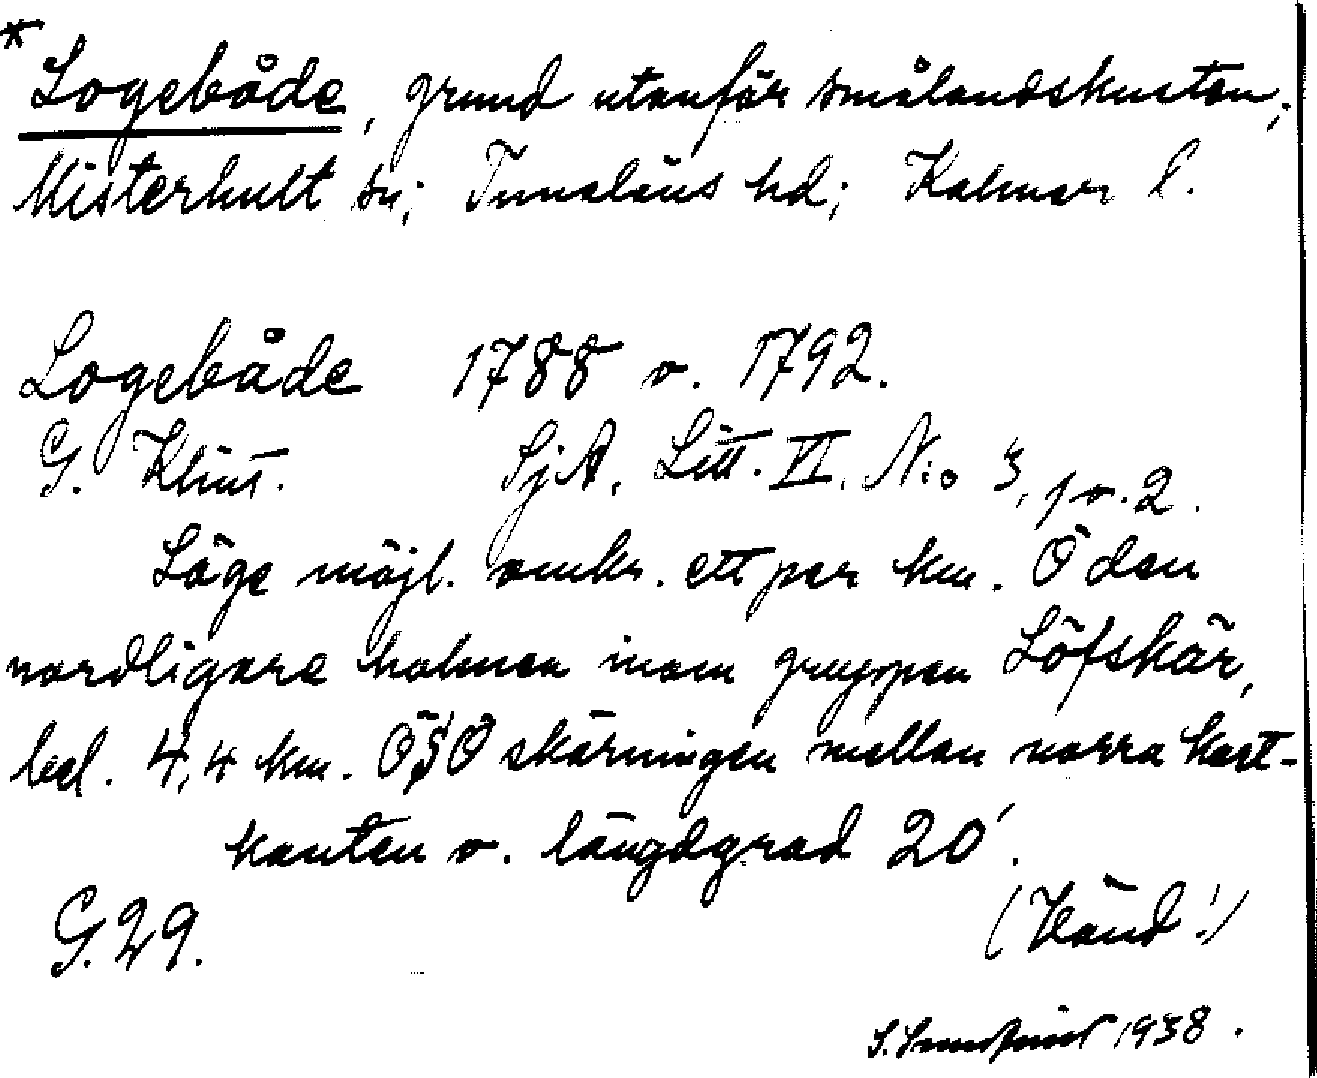 * Logebåde, grund utanför smålandskusten;
Misterhult sn; Tunaläns hd; Kalmar l.
Logebåde 1788 o. 1792.
G. Klint. SjA, Litt. VI. N:o 3, 1 o. 2.
Läge möjl. omkr. ett par km. Ö den
nordligare holmen inom gruppen Löfskär,
bel. 4,4 km. ÖSÖ skärningen mellan norra kart-
kanten o. längdgrad 20'.
G. 29. (Vänd!)
1938.